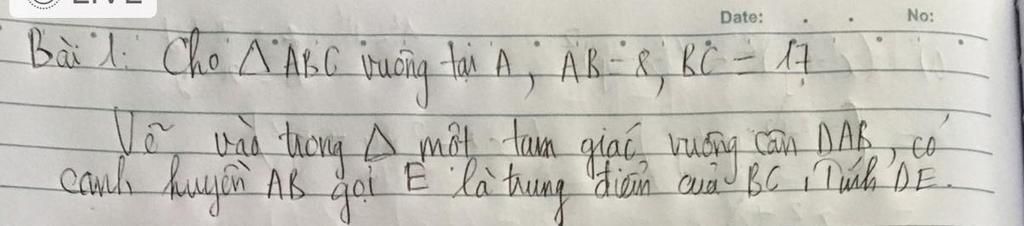 Date: . . No:
Bài 1: Cho △ ABC vuông tại A, AB = 8, BC = 17
Vẽ vào trong △ một tam giác vuông cân DAB, có
cạnh huyền AB gọi E là trung điểm của BC, Tính DE.